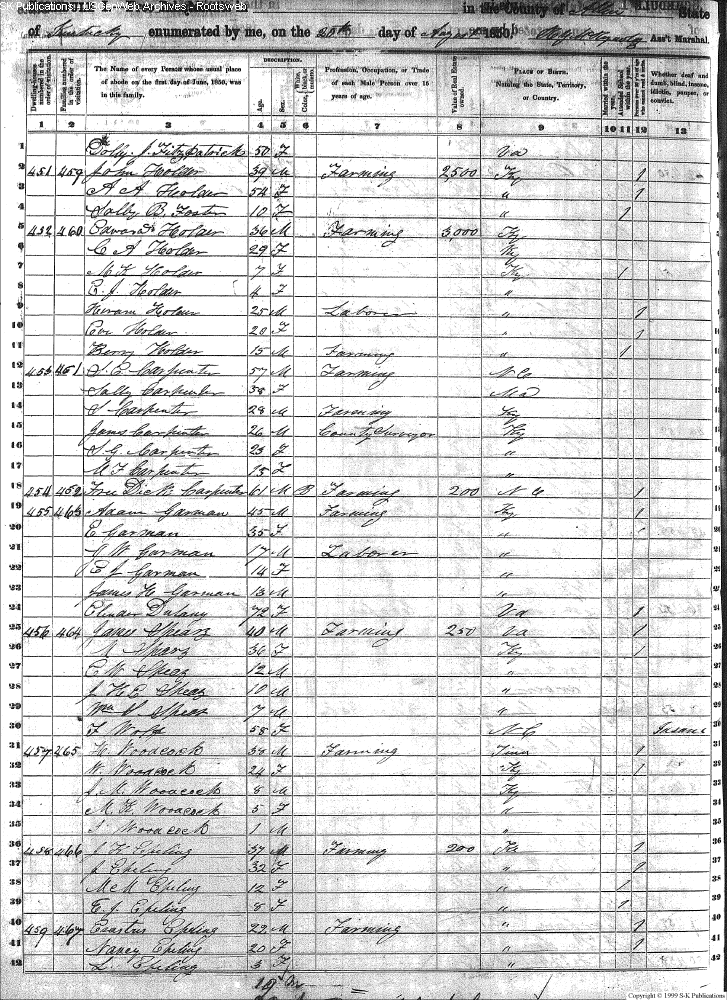 S-K Publications USGenWeb Archives - Rootsweb
in the County of Allen State
of Kentucky enumerated by me, on the 20th day of August 1850. Ass't Marshal.
DESCRIPTION.
Dwelling-houses numbered in the order of visitation.
Families numbered in the order of visitation.
The Name of every Person whose usual place of abode on the first day of June, 1850, was in this family.
Age.
Sex.
Color, White, black, or mulatto.
Profession, Occupation, or Trade of each Male Person over 15 years of age.
Value of Real Estate owned.
PLACE OF BIRTH. Naming the State, Territory, or Country.
Married within the year.
Whether deaf and dumb, blind, insane, idiotic, pauper, or convict.
1 2 3 4 5 6 7 8 9 10 11 12 13
1 Polly J. Fitzpatrick 50 F Va
2 451 459 John Holder 39 M Farming 2,500 Ky 1
3 A A Holder 54 F " 1
4 Sally B. Foster 10 F " 1
5 452 460 Edward Holder 36 M Farming 3,000 Ky
6 C A Holder 29 F Ky
7 M F Holder 7 F Ky 1
8 E. J. Holder 4 F "
9 Hiram Holder 25 M Laborer " 1
10 Holder 20 F " 1
11 Berry Holder 15 M Farming " 1
12 453 461 S. E. Carpenter 57 M Farming N C
13 Sally Carpenter 58 F Md
14 S Carpenter 28 M Farming Ky
15 James Carpenter 26 M County Surveyor Ky
16 S G. Carpenter 23 F "
17 M F Carpenter 15 F "
18 454 462 Free Dick Carpenter 61 M B Farming 200 N C 1
19 455 463 Adam Garman 45 M Farming Ky 1
20 E Garman 35 F " 1
21 J W Garman 17 M Laborer "
22 E J Garman 14 F "
23 James H. Garman 13 M "
24 Dulany 72 F Va 1
25 456 464 James Spears 40 M Farming 250 Va 1
26 Spears 36 F Ky 1
27 C W Spears 12 M "
28 J H C Spears 10 M "
29 Wm Spears 7 M "
30 F Wolf 58 F N C Insane
31 457 465 H. Woodcock 38 M Farming Tenn 1
32 W. Woodcock 24 F Ky 1
33 J. M. Woodcock 8 M Ky
34 M. H. Woodcock 5 F "
35 Woodcock 1 M "
36 458 466 J H Epeling 37 M Farming 200 Ky 1
37 J Epeling 32 F " 1
38 Mc M Epeling 12 F " 1
39 E. J. Epeling 8 F " 1
40 459 467 Erastus Epeling 22 M Farming " 1
41 Nancy Epeling 20 F " 1
42 L. Epeling 3 F "
19 m
Copyright © 1999 S-K Publications